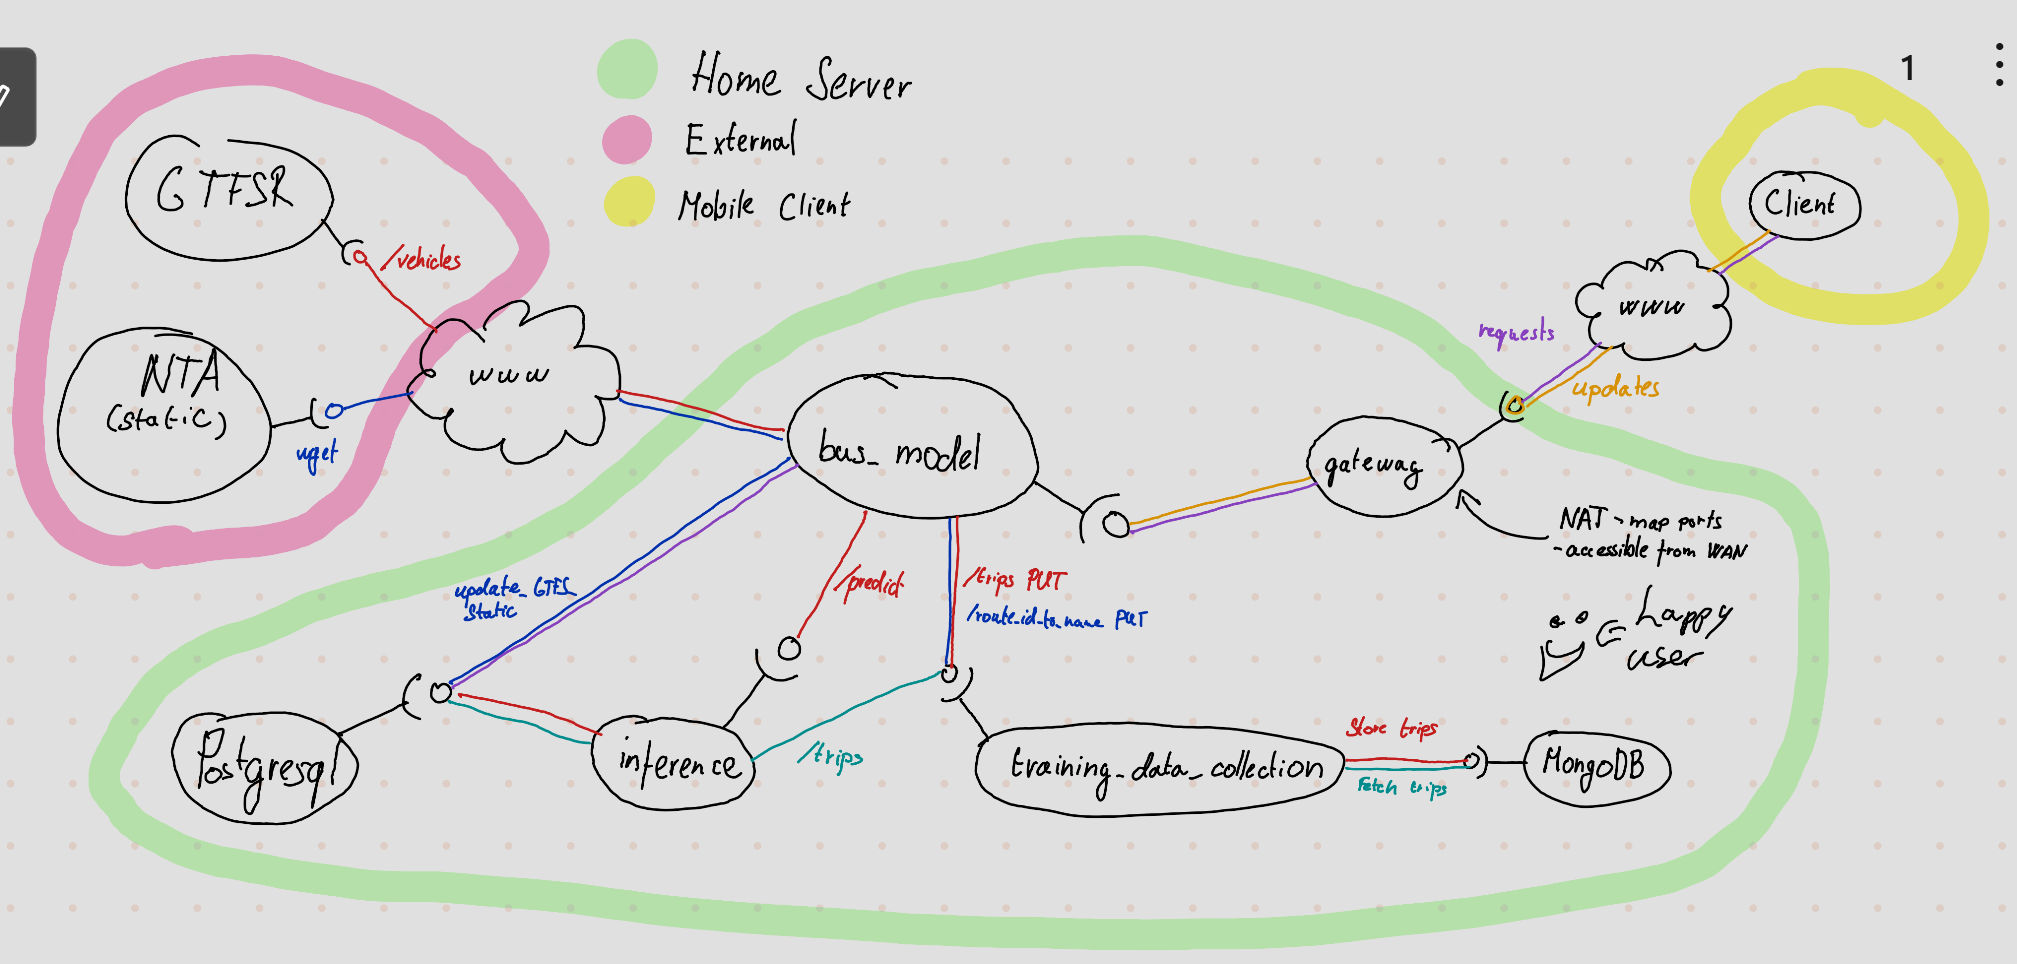 Home Server
External
Mobile Client
1
GTFSR
/vehicles
NTA
(static)
wget
www
bus_model
gateway
www
Client
requests
updates
NAT - map ports
- accessible from WAN
happy
user
update_GTFS_
static
/predict
/trips PUT
/route_id_to_name PUT
Postgresql
inference
/trips
training_data_collection
Store trips
Fetch trips
MongoDB